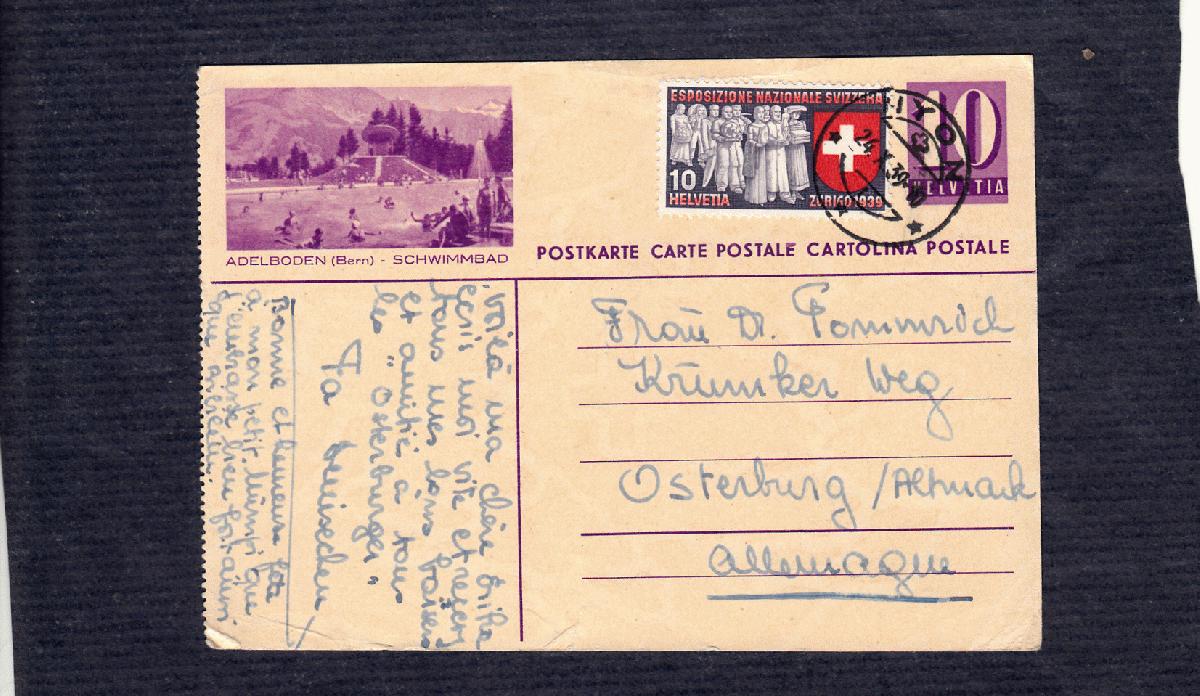 ESPOSIZIONE NAZIONALE SVIZZERA
10
HELVETIA
ZURIGO 1939
NYON
24.X.39-10
10
HELVETIA
ADELBODEN (Bern) - SCHWIMMBAD
POSTKARTE CARTE POSTALE CARTOLINA POSTALE
Frau Dr. Pommrich
Krumker Weg
Osterburg /Altmark
Allemagne
Voilà ma chère Erika
écris moi vite et reçois
tous mes bons baisers
et amitié à tous
les "Osterburger"
Ta
Bonne et heureuse fête
à mon petit que
j'embrasse bien fort aussi